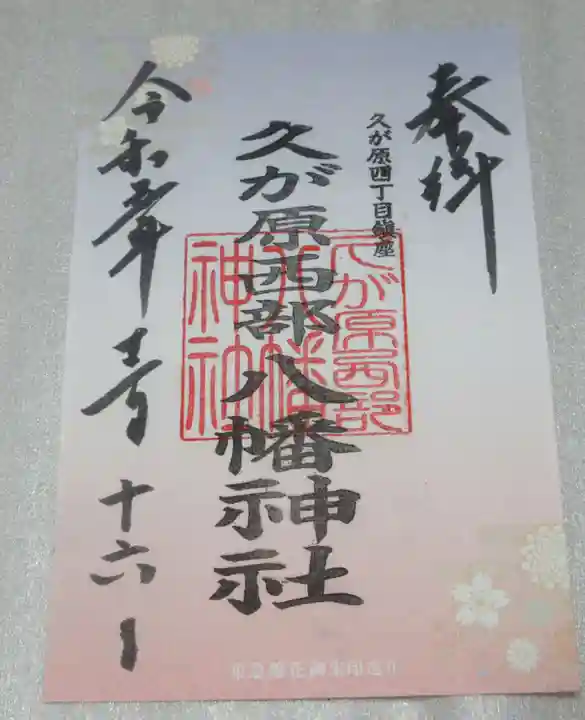 奉拝
久が原四丁目鎮座
久が原西部八幡神社
久が原西部
八幡
神社
令和
十六日